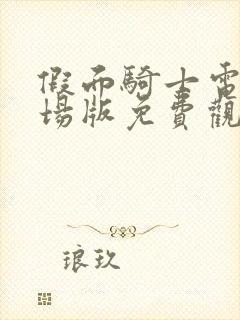 假面騎士電
場版免費觀
琅玖